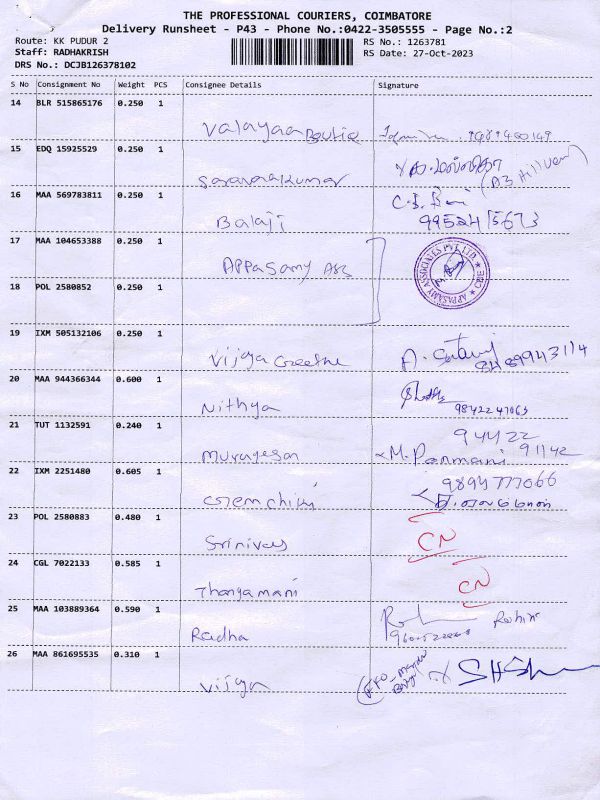 THE PROFESSIONAL COURIERS, COIMBATORE
Delivery Runsheet - P43 - Phone No.:0422-3505555 - Page No.:2
Route: KK PUDUR 2 RS No.: 1263781
Staff: RADHAKRISH RS Date: 27-Oct-2023
DRS No.: DCJB126378102
S No Consignment No Weight PCS Consignee Details Signature
14 BLR 515865176 0.250 1
Valayaa Boutiq
15 EDQ 15925529 0.250 1
Saravanakumar
16 MAA 569783811 0.250 1
Balaji 9952415673
17 MAA 104653388 0.250 1
APPaSamy ASS APPASAMY ASSOCIATES PVT LTD CBE
18 POL 2580852 0.250 1
19 IXM 505132106 0.250 1
Vijaya Geetha 8489943114
20 MAA 944366344 0.600 1
Nithya 9842247063
21 TUT 1132591 0.240 1 94422
Murugesan M. Ponmani 91142
22 IXM 2251480 0.605 1 9894777066
23 POL 2580883 0.480 1
Srinivas CN
24 CGL 7022133 0.585 1
Thangamani CN
25 MAA 103889364 0.590 1
Radha
26 MAA 861695535 0.310 1
Vijaya